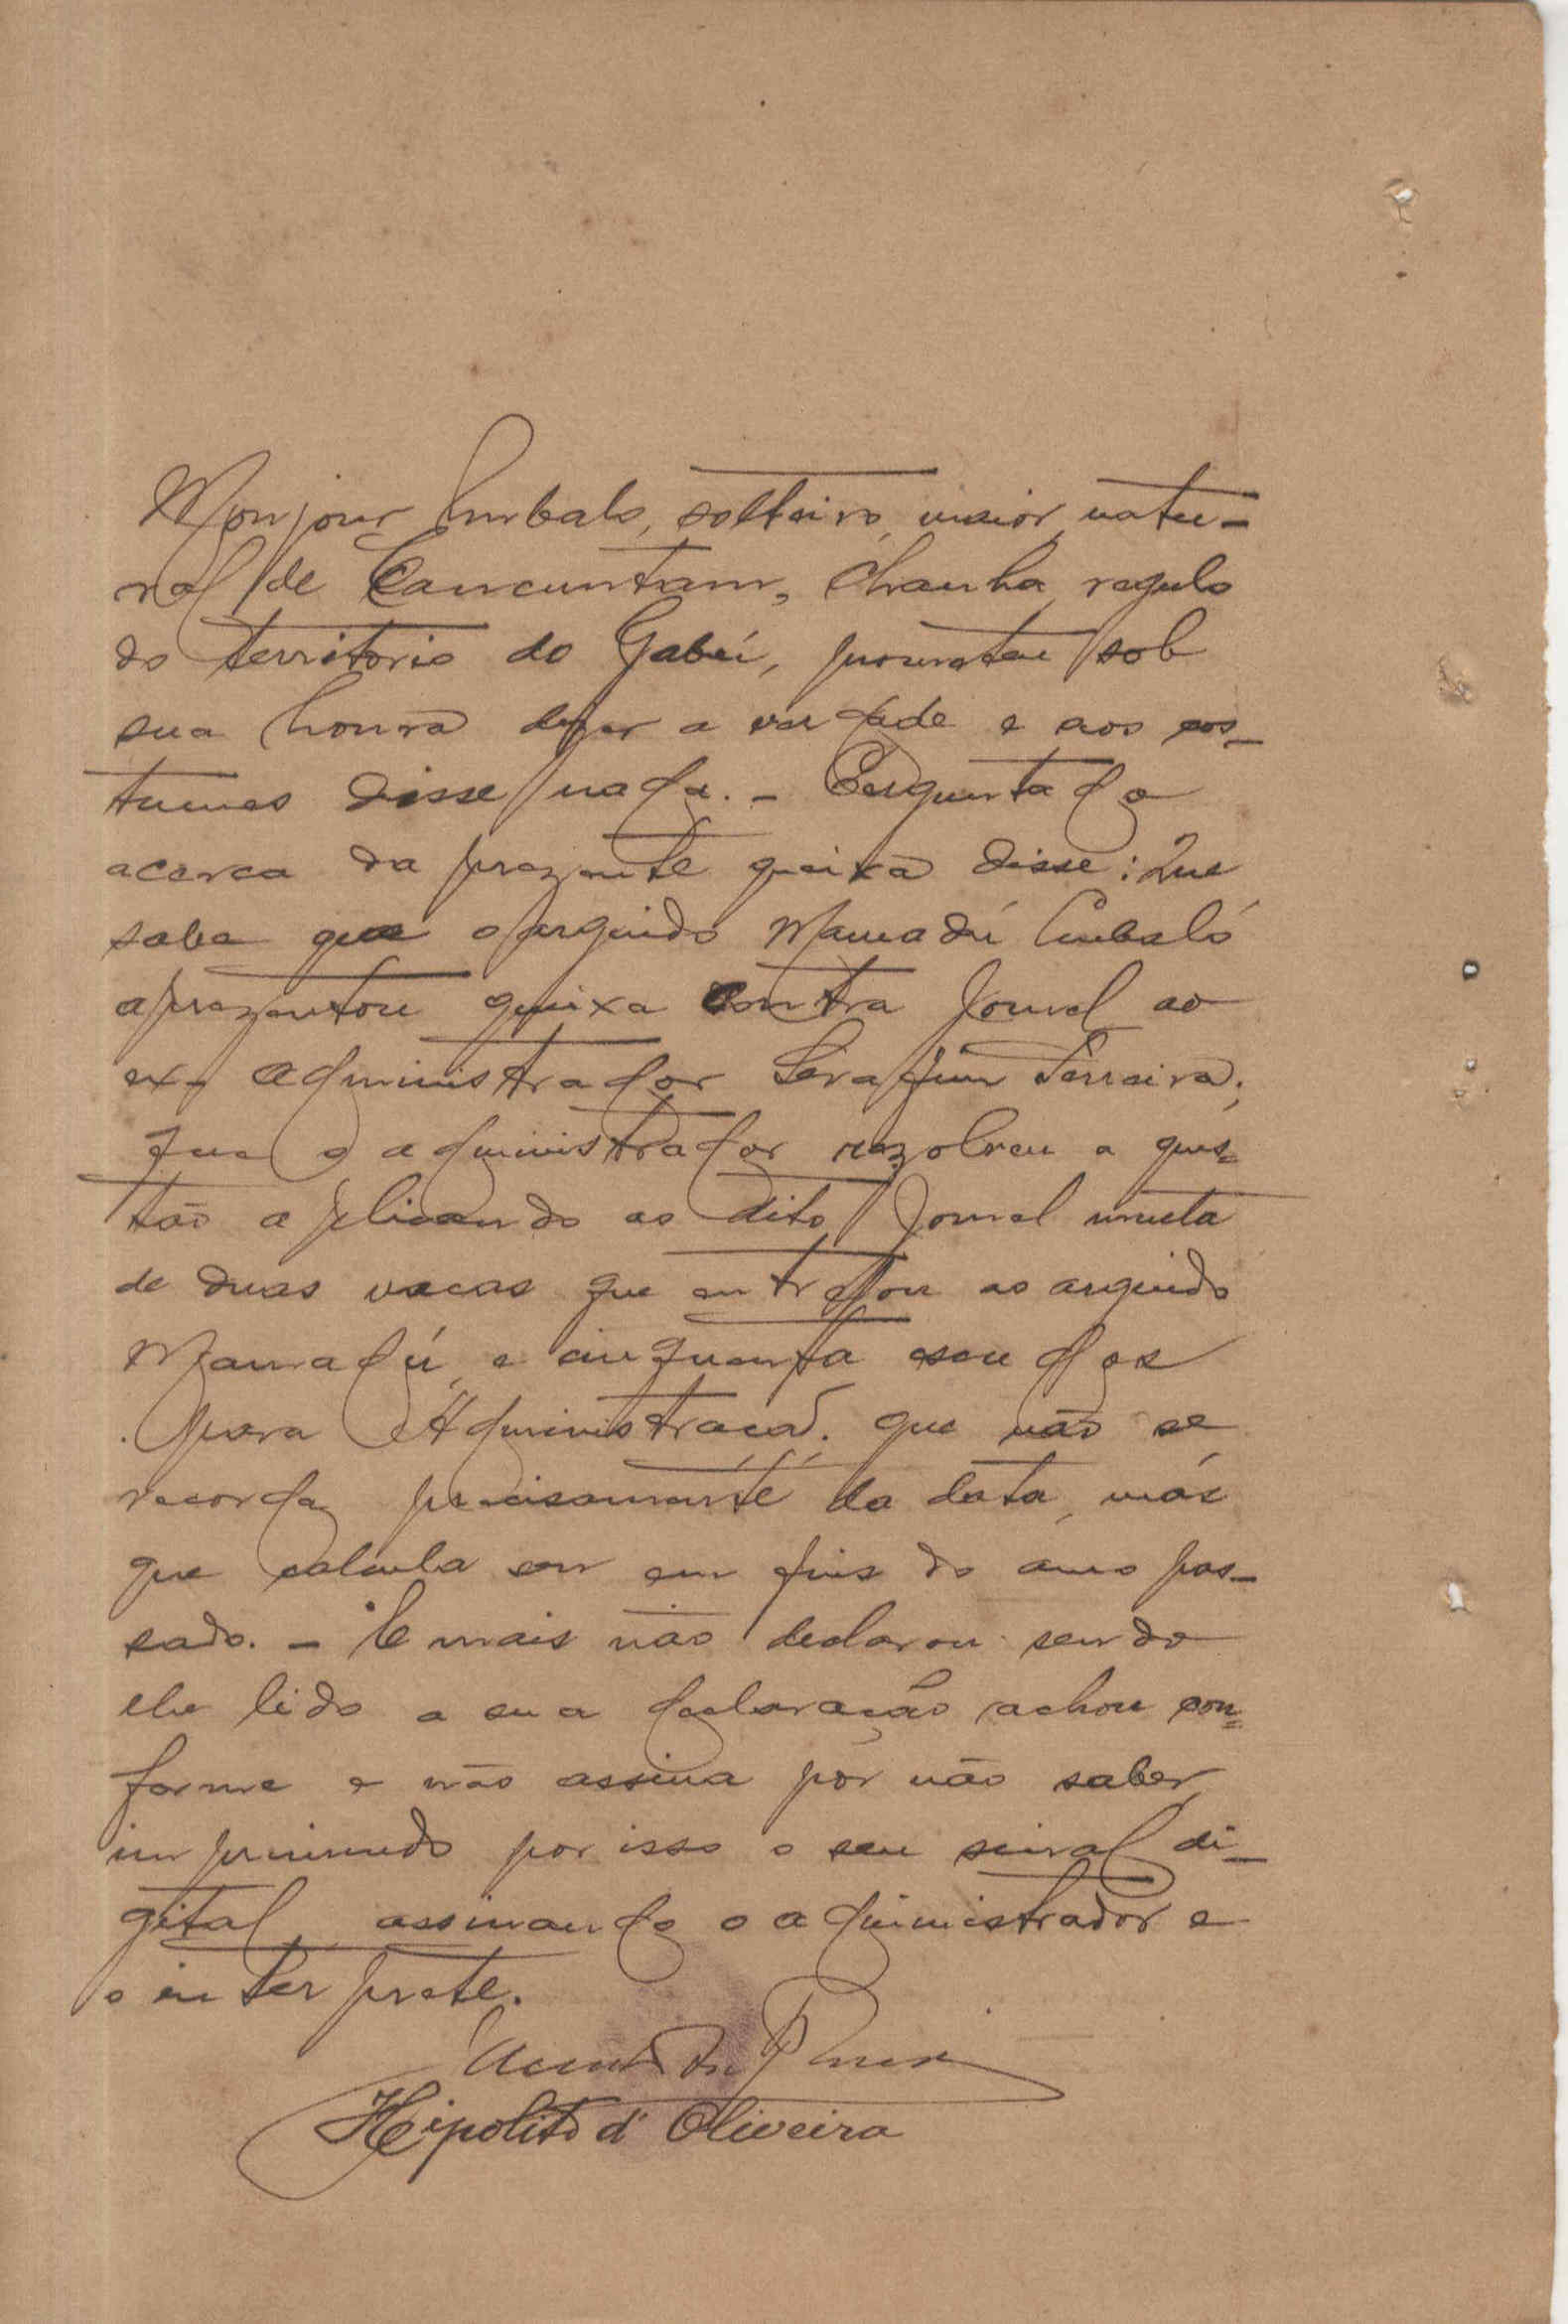 Monjour Embalo, solteiro, maior, natu-
ral de Cancuntum, Chanha, regulo
do territorio do Gabú, prometeu sob
sua honra dizer a verdade e aos cos-
tumes disse nada. - Perguntado
acerca da prezente queixa disse: Que
sabe que o arguido Mamadú Embaló
aprezentou queixa contra Jomel ao
ex-administrador Serafim Ferreira;
que o administrador rezolveu a ques=
tão aplicando ao dito Jomel multa
de duas vacas que entregou ao arguido
Mamadú, e cinquenta escudos
para Administracão. que não se
recorda precisamente da data, más
que calcula ser em fins do ano pas-
sado. - E mais não declarou sendo
lhe lido a sua declaração achou con=
forme e não assina por não saber,
imprimindo por isso o seu sinal di-
gital assinando o administrador e
o interprete.
Hipolito d'Oliveira